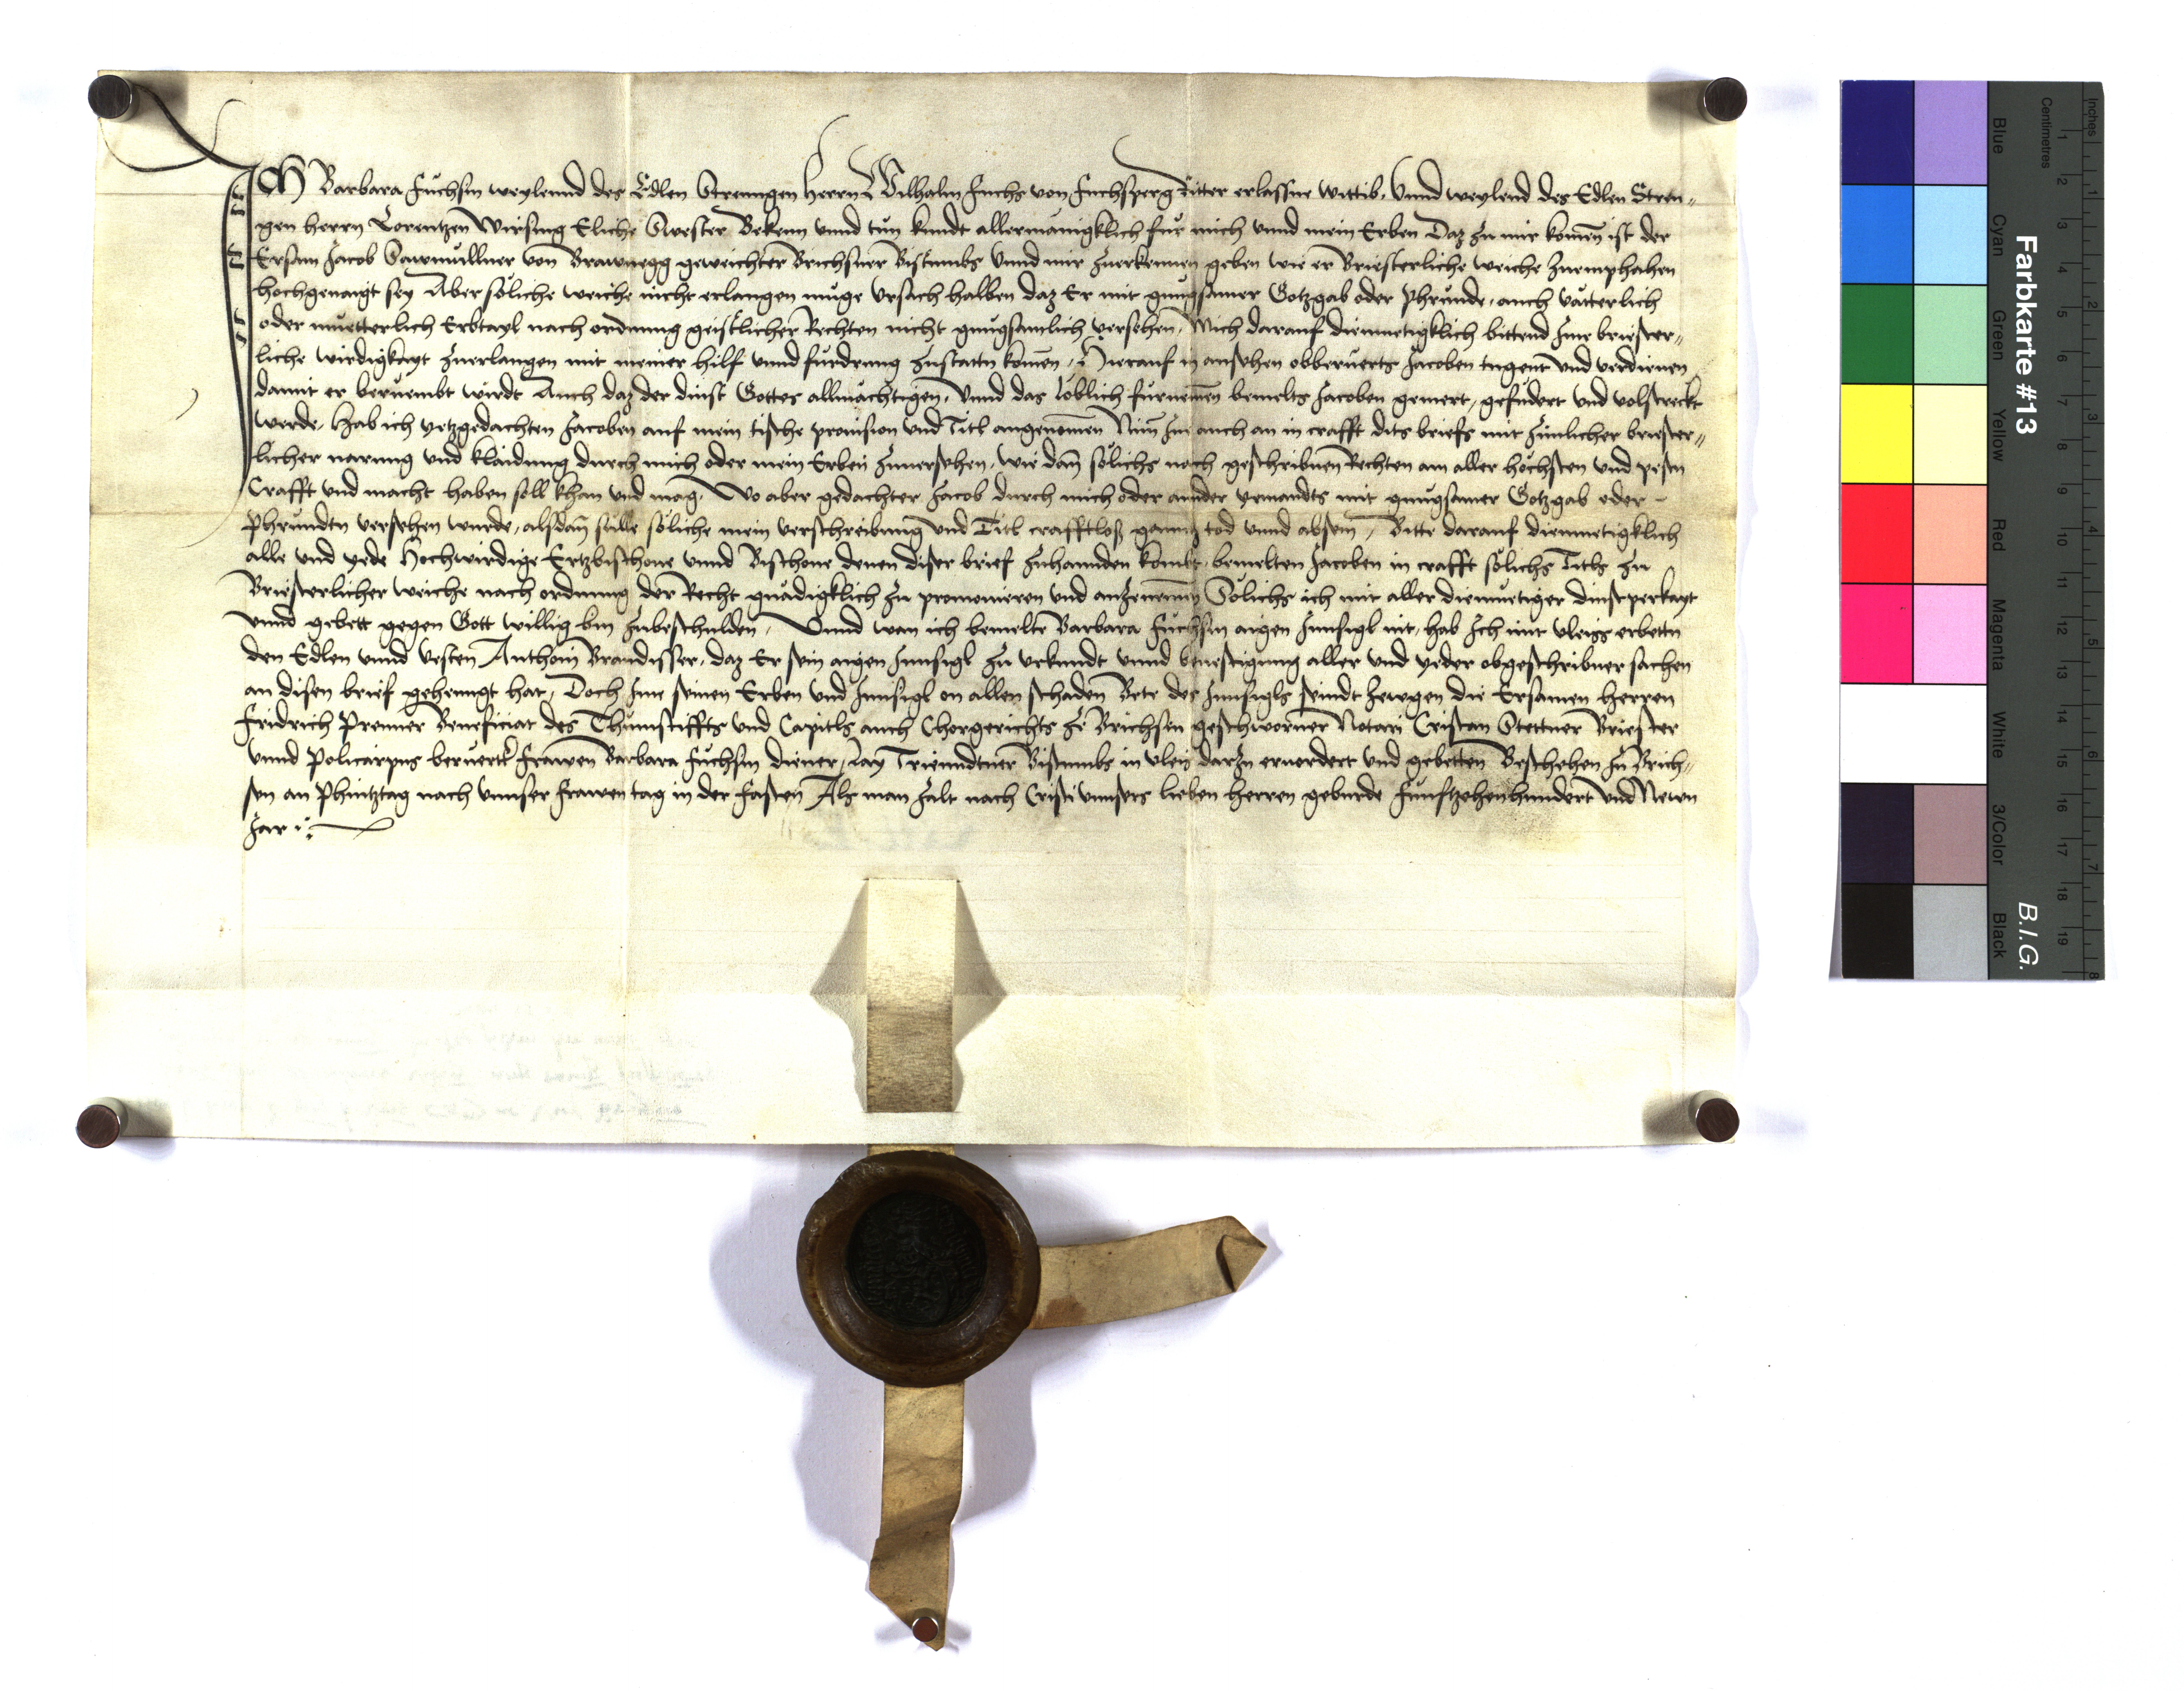 Ich Barbara Fuchsin weylennd des Edlen Strenngen Herrn Wilhalm Fuchs von Fuchsperg Ritter erlassne wittib, Vnnd weylend des Edlen Stren„
gen herrn Lorentzen Wirsing Eliche Swester Bekenn vnnd tun kundt allermanigklich fur mich vnnd mein Erben Daz zu mir komen ist der
Ersam Jacob von Brawnegg geweichter Brichsner Bistumbs Vnnd mir zuerkennen geben wie er Briesterliche weiche zuemphahen
hochgenaigt sey Aber soliche weiche nicht erlangen muge vrsach halben daz Er mit gnugsamer Gotzgab oder phrunde, auch vatterlich
oder muetterlich Erbtayl nach ordnung geistlicher Rechten nicht gnugsamlich versehen, Mich darauf diemuetigklich bittend Jme briester„
liche wirdigkayt zuerlangen mit meiner hilf vnnd furdrung zustattn komen, Hierauf in ansehen obberuerts Jacoben tugent vnd verdienen
damit er beruembt wirdt Auch daz der dinst Gottes allmachtigen, Vnnd das loblich furnemen bemelts Jacoben gemert, gefudert vnd volstreckt
werde, Hab ich yetzgedachten Jacoben auf mein tische prouision vnd Titl angenomen Nim Jn auch an in crafft dits briefs mit zimlicher briester„
licher narung vnd klaidung durch mich oder mein Erben zuuersehen, wie dan solichs nach geschribnen Rechten am aller hochsten vnd pesten
Crafft vnd macht haben soll khan vnd mag, Wo aber gedachter Jacob durch mich oder annder yemandts mit gnugsamer Gotzgab oder -
Phrundtn versehen wurde, alsdan sulle soliche mein verschreibung vnd Titl crafftloß ganntz tod vnnd absein, Bitte darauf diemuetigklich
alle vnd yede Hochwirdige Ertzbischoue vnnd Bischoue denen diser brief zuhannden kombt, bemelten Jacoben in crafft solichs Titls zu
Briesterlicher weiche nach ordnung der Recht gnadigklich zu promouieren vnd anzenemen Solichs ich mit aller diemuetiger dinstperkayt
vnnd gebett gegen Gott willig bin zubeschulden, Vnnd wan ich bemelte Barbara Fuchsin aigen Innsigl nit, hab Ich mit vleiss erbettn
den Edlen vnnd vesten Anthoin Brandisser, daz Er sein aigen Innsigl zu vrkundt vnnd beuestigung aller vnd yeder obgeschribner sachen
an disen brief gehenngt hat, Doch Jme seinen Erben vnd Innsigl on allen schaden Bete des Innsigls seindt zewgen die Ersamen herren
Fridrich Prenner Beneficiat des Thumstiffts vnd Capitls auch Chorgerichts ze Brichsen geschworner Notari Cristan Stettner Briester
vnnd Policarpus beruertr Frawen Barbara Fuchsin diener, Lay Trienndtner Bistumbs in vleis darzu eruordert vnd gebetten Beschehen zu Brich„
sen an Phintztag nach vnnser Frawen tag in der Fasten Als man zalt nach Cristi vnnsers lieben herren geburde Funftzehenhundert vnd Newn
Jar
Farbkarte #13
B.I.G.
Inches
Centimetres
Blue Cyan Green Yellow Red Magenta White 3/Color Black
1 2 3 4 5 6 7 8 9 10 11 12 13 14 15 16 17 18 19
1 2 3 4 5 6 7 8